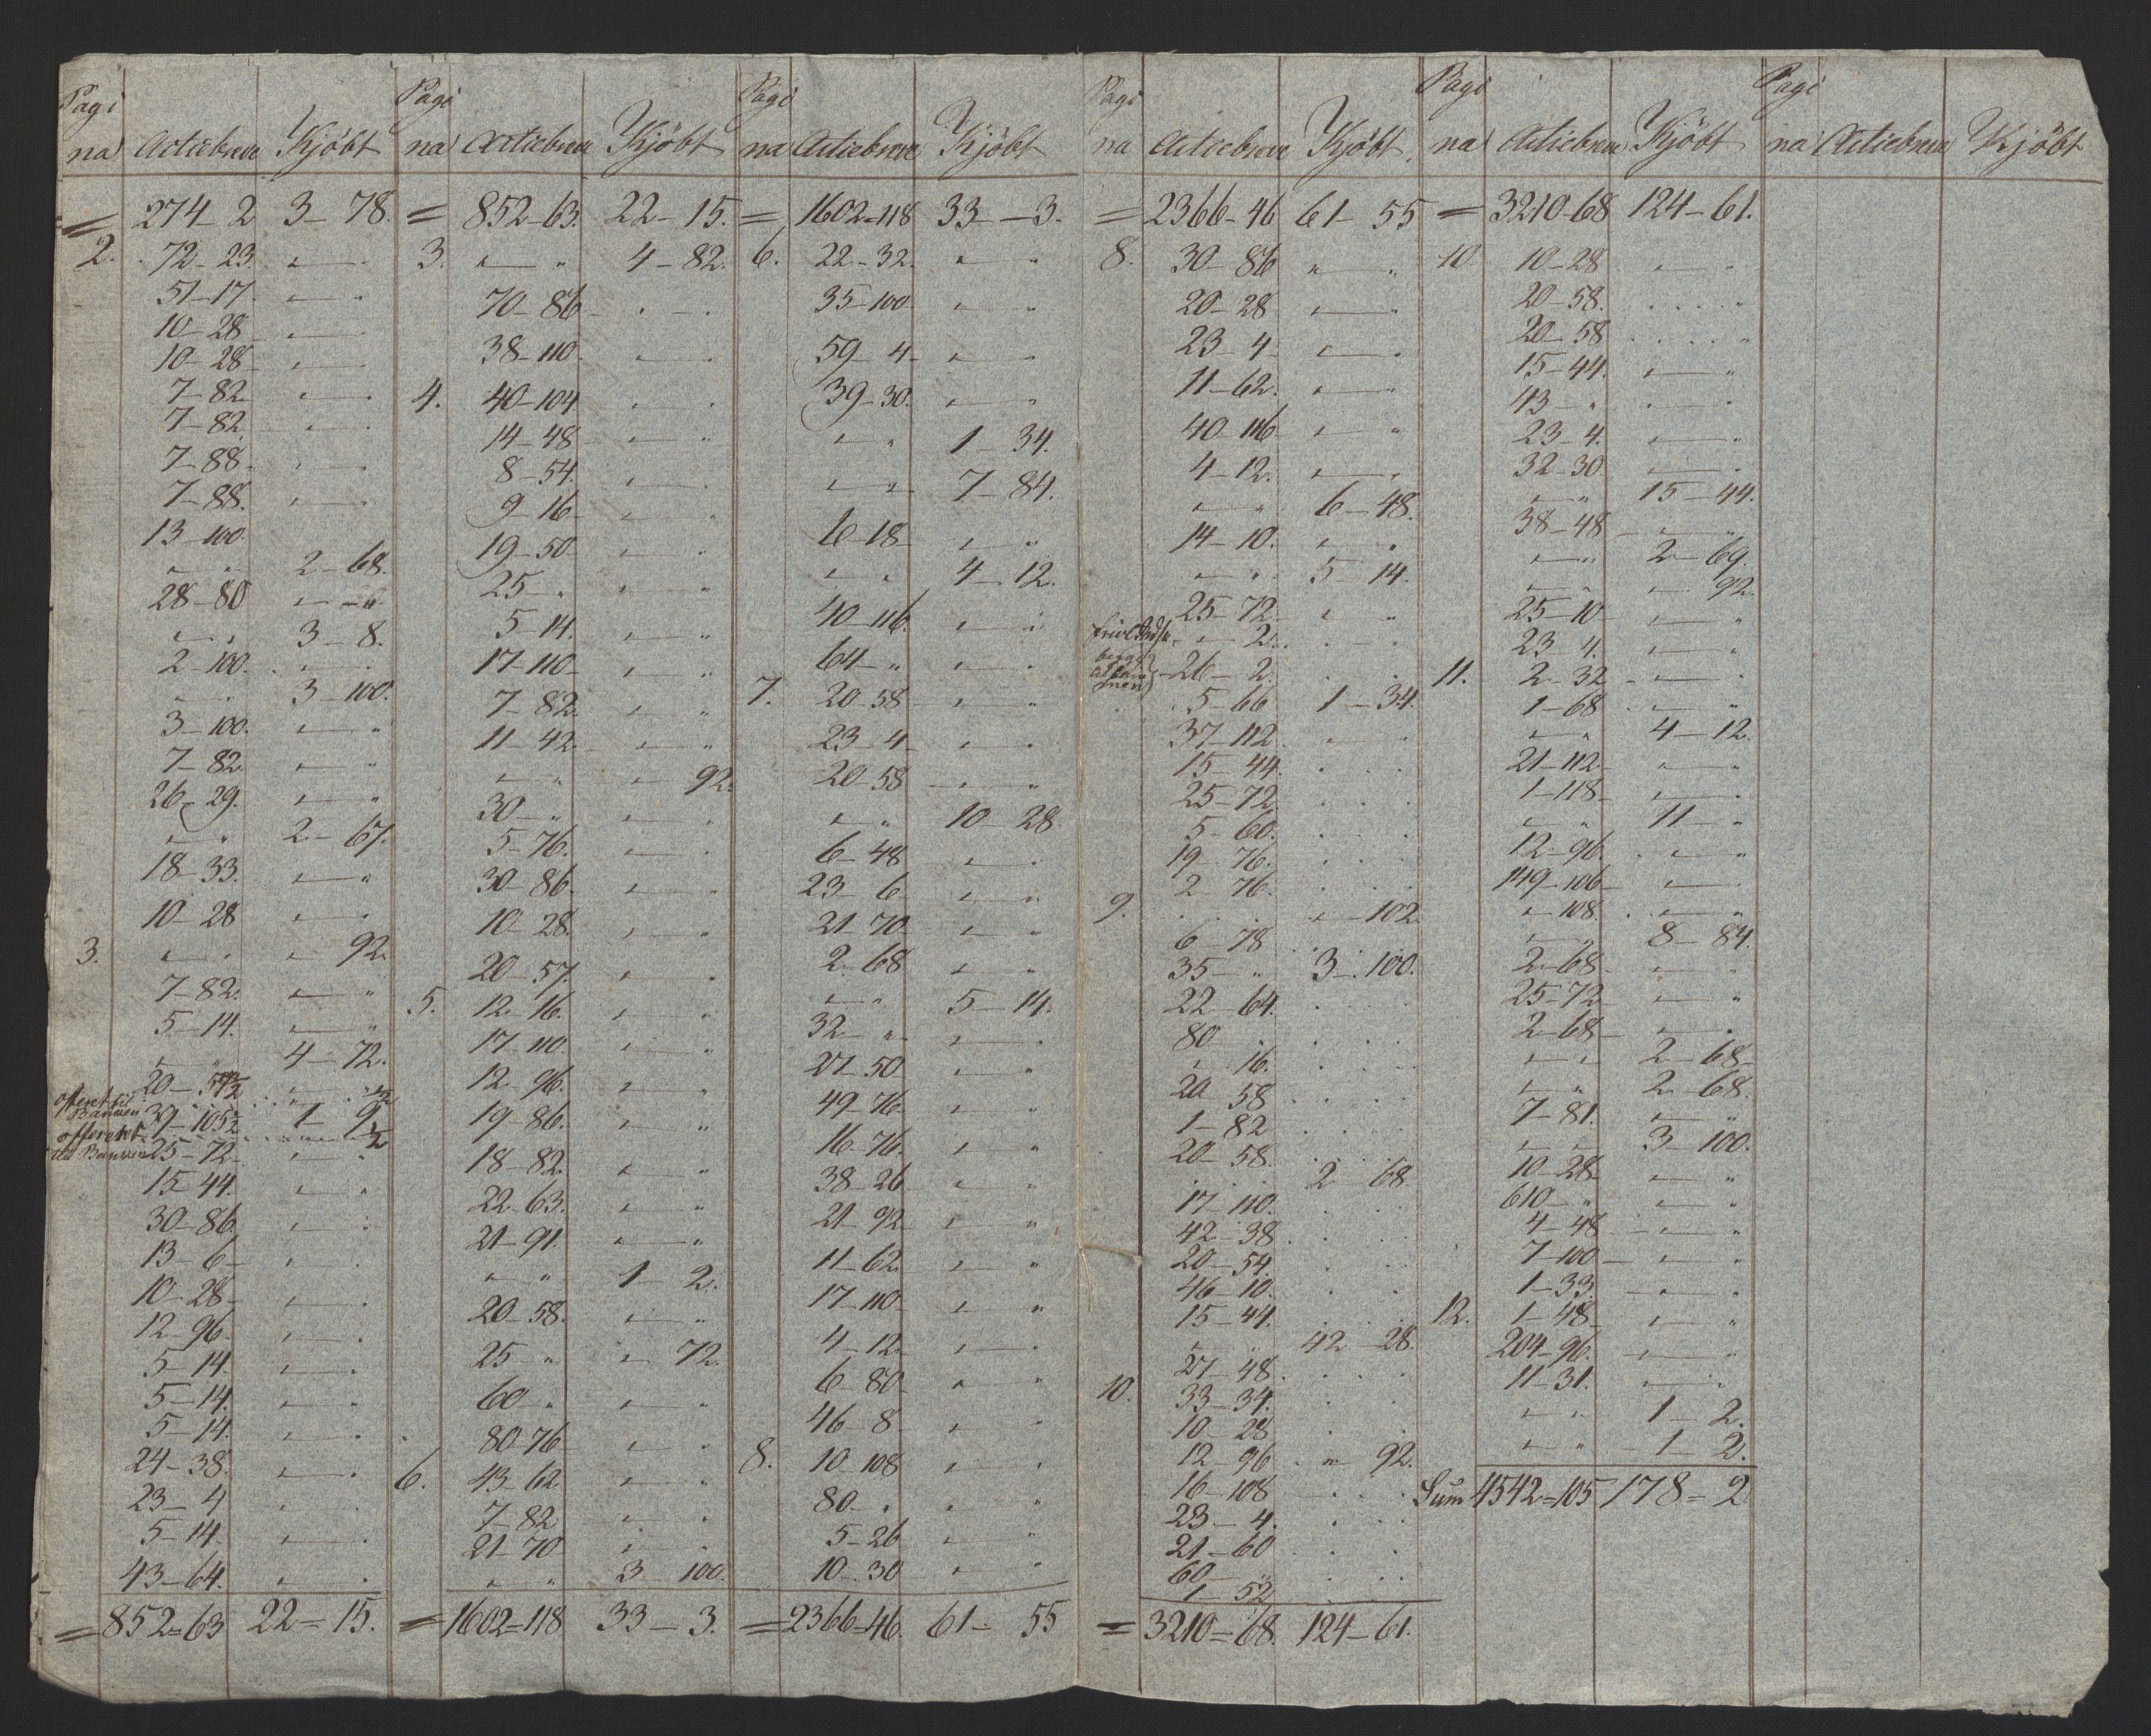 Pagi
na Actiebreve Kjöbt
= 274-2 3-78.
2. 72-23.
51-17.
10-28
10-28
7-82
7-82
7-88.
7-88.
13-100
2-68.
28-80
3-8.
2-100.
3-100.
3-100.
7-82.
26-29.
2-67.
18-33.
10-28
3. 92.
7-82.
5-14.
4-72.
20-57½ ½
offeret til Bankien 39-105½ 1-9½
offeretet til Bankien 25-72
15-44.
30-86.
13-6
10-28
12-96
5-14.
5-14.
5-14.
24-38.
23-4
5-14.
43-64.
= 852=63 22=15.
Pagi
na Actiebreve Kjöbt
= 852-63. 22-15.
3. 4-82.
70-86
38-110
4. 40-104
14-48
8-54.
9-16
19-50
25-"
5-14.
17-110
7-82.
11-42.
92.
30-"
5-76.
30-86.
10-28.
20-57.
5. 12-16.
17-110.
12-96.
19-86.
18-82.
22-63.
21-91.
1-2.
20-58.
25-" 72.
60-"
80-76
6. 43-62
7-82
21-70
3-100.
= 1602=118 33-3.
Pagi
na Actiebreve Kjöbt
= 1602=118 33-3.
6. 22-32.
35-100.
59-4
39-30.
1-34.
7-84.
6-18
4-12.
40-116.
64-"
7. 20-58
23-4
20-58
10-28.
6-48
23-6
21-70
2-68
5-14.
32-"
27-50
49-76
16-76.
38-26
21-92
11-62.
17-110
4-12
6-80
46-8
8. 10-108
80-"
5-26
10-30
= 2366=46. 61-55
Pagi
na Actiebreve Kjöbt
= 2366-46 61-55
8. 30-86
20-28
23-4
11-62.
40-116
4-12.
6-48.
14-10.
5-14.
25-72
2.
26-2.
5-66 1-34.
37-112
15-44.
25-72
5-60.
19-76.
2-76.
9. 102
6-78
35-" 3-100.
22-64.
80
16.
20-58
1-82
20-58.
2-68
17-110.
42-38
20-54.
46-10.
15-44.
42-28.
27-48
10. 33-34.
10-28
12-96 92.
16-108
23-4.
21-60
60-"
1-52
= 3210=68. 124-61.
Pagi
na Actiebreve Kjöbt
= 3210-68 124-61.
10. 10-28
20-58.
20-58
15-44.
43-"
23-4.
32-30
15-44.
38-48
2-69.
92.
25-10
23-4.
11. 2-32
1-68
4-12.
21-112
1-118
11-"
12-96.
149-106
108.
8-84.
2-68
25-72
2-68
2-68
2-68.
7-81.
3-100.
10-28
610-"
4-48
7-100
1-33.
12. 1-48
204-96.
11-31.
1-2.
1-2.
Sum 4542=105 178=2
Pagi
na Actiebreve Kjöbt